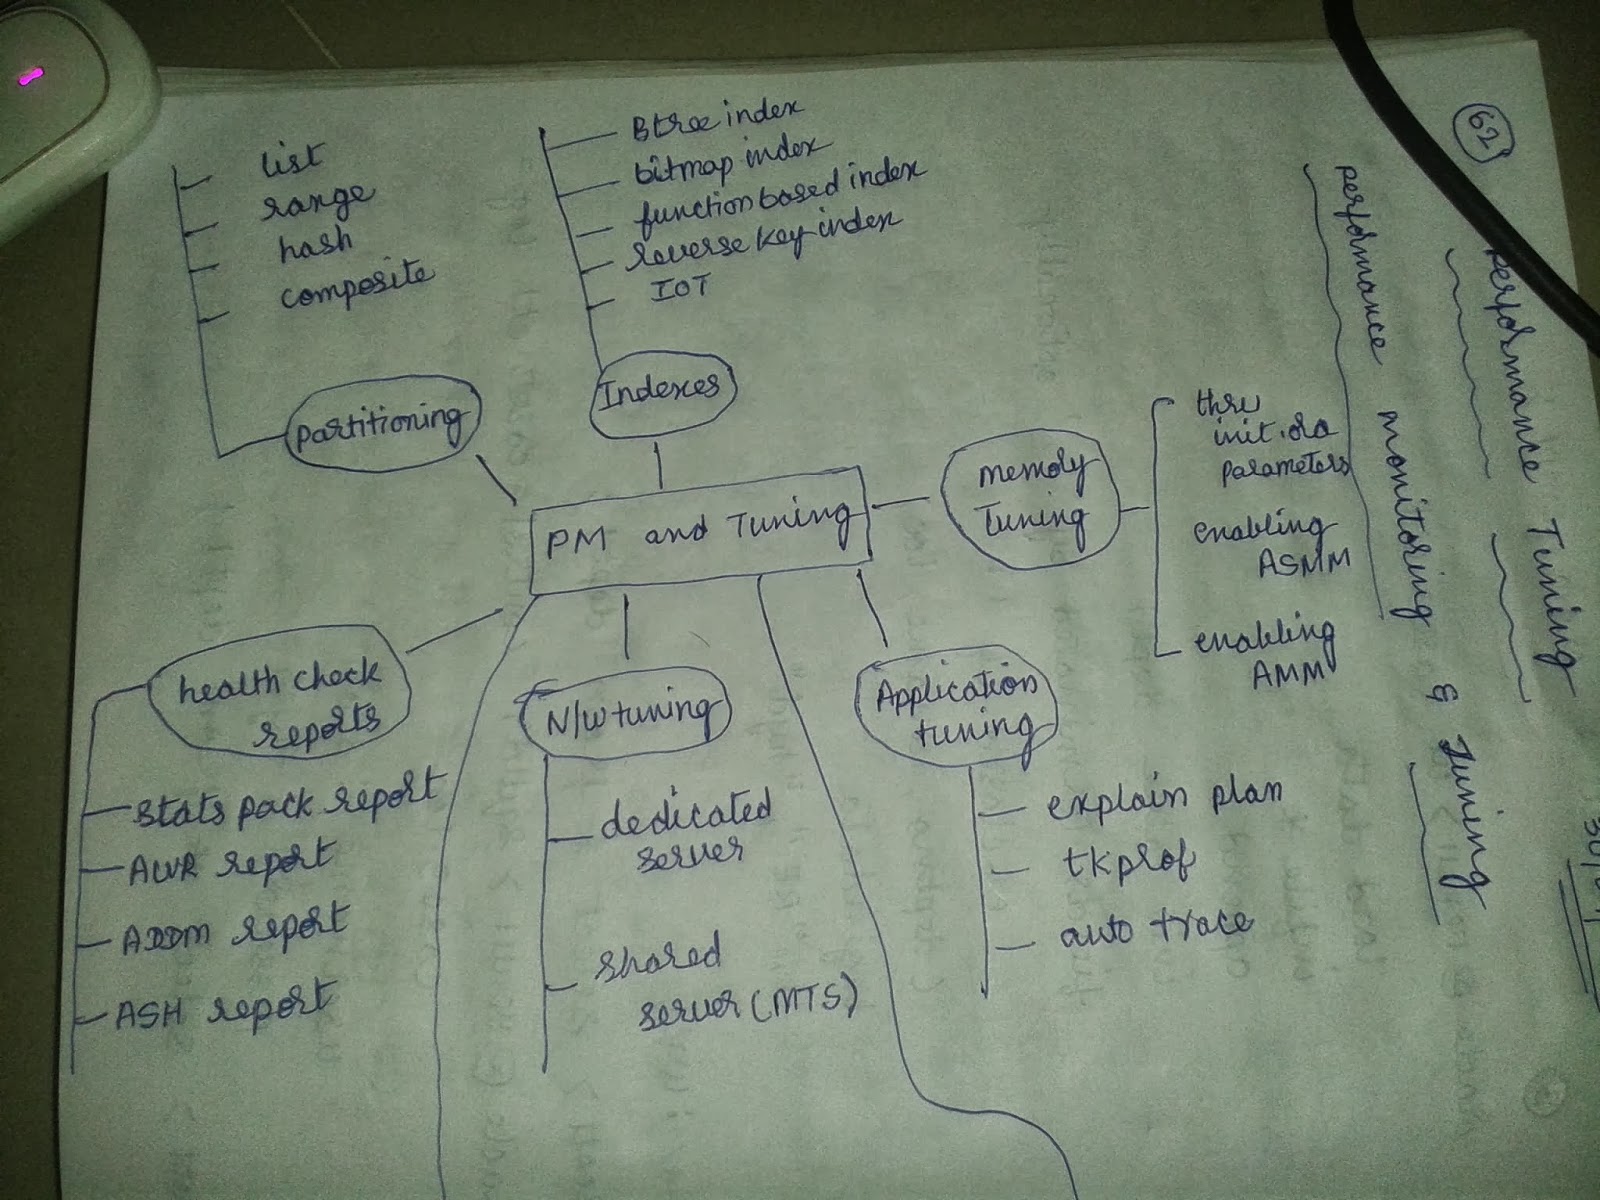 62
Performance Tuning
performance monitoring & Tuning
list
range
hash
composite
Partitioning
Btree index
bitmap index
function based index
reverse key index
IOT
Indexes
PM and Tuning
Memory
Tuning
thru
init.ora
parameters
enabling
ASMM
enabling
AMM
health check
reports
Stats pack report
AWR report
ADDM report
ASH report
N/w tuning
dedicated
server
shared
server (MTS)
Application
tuning
explain plan
tkprof
auto trace